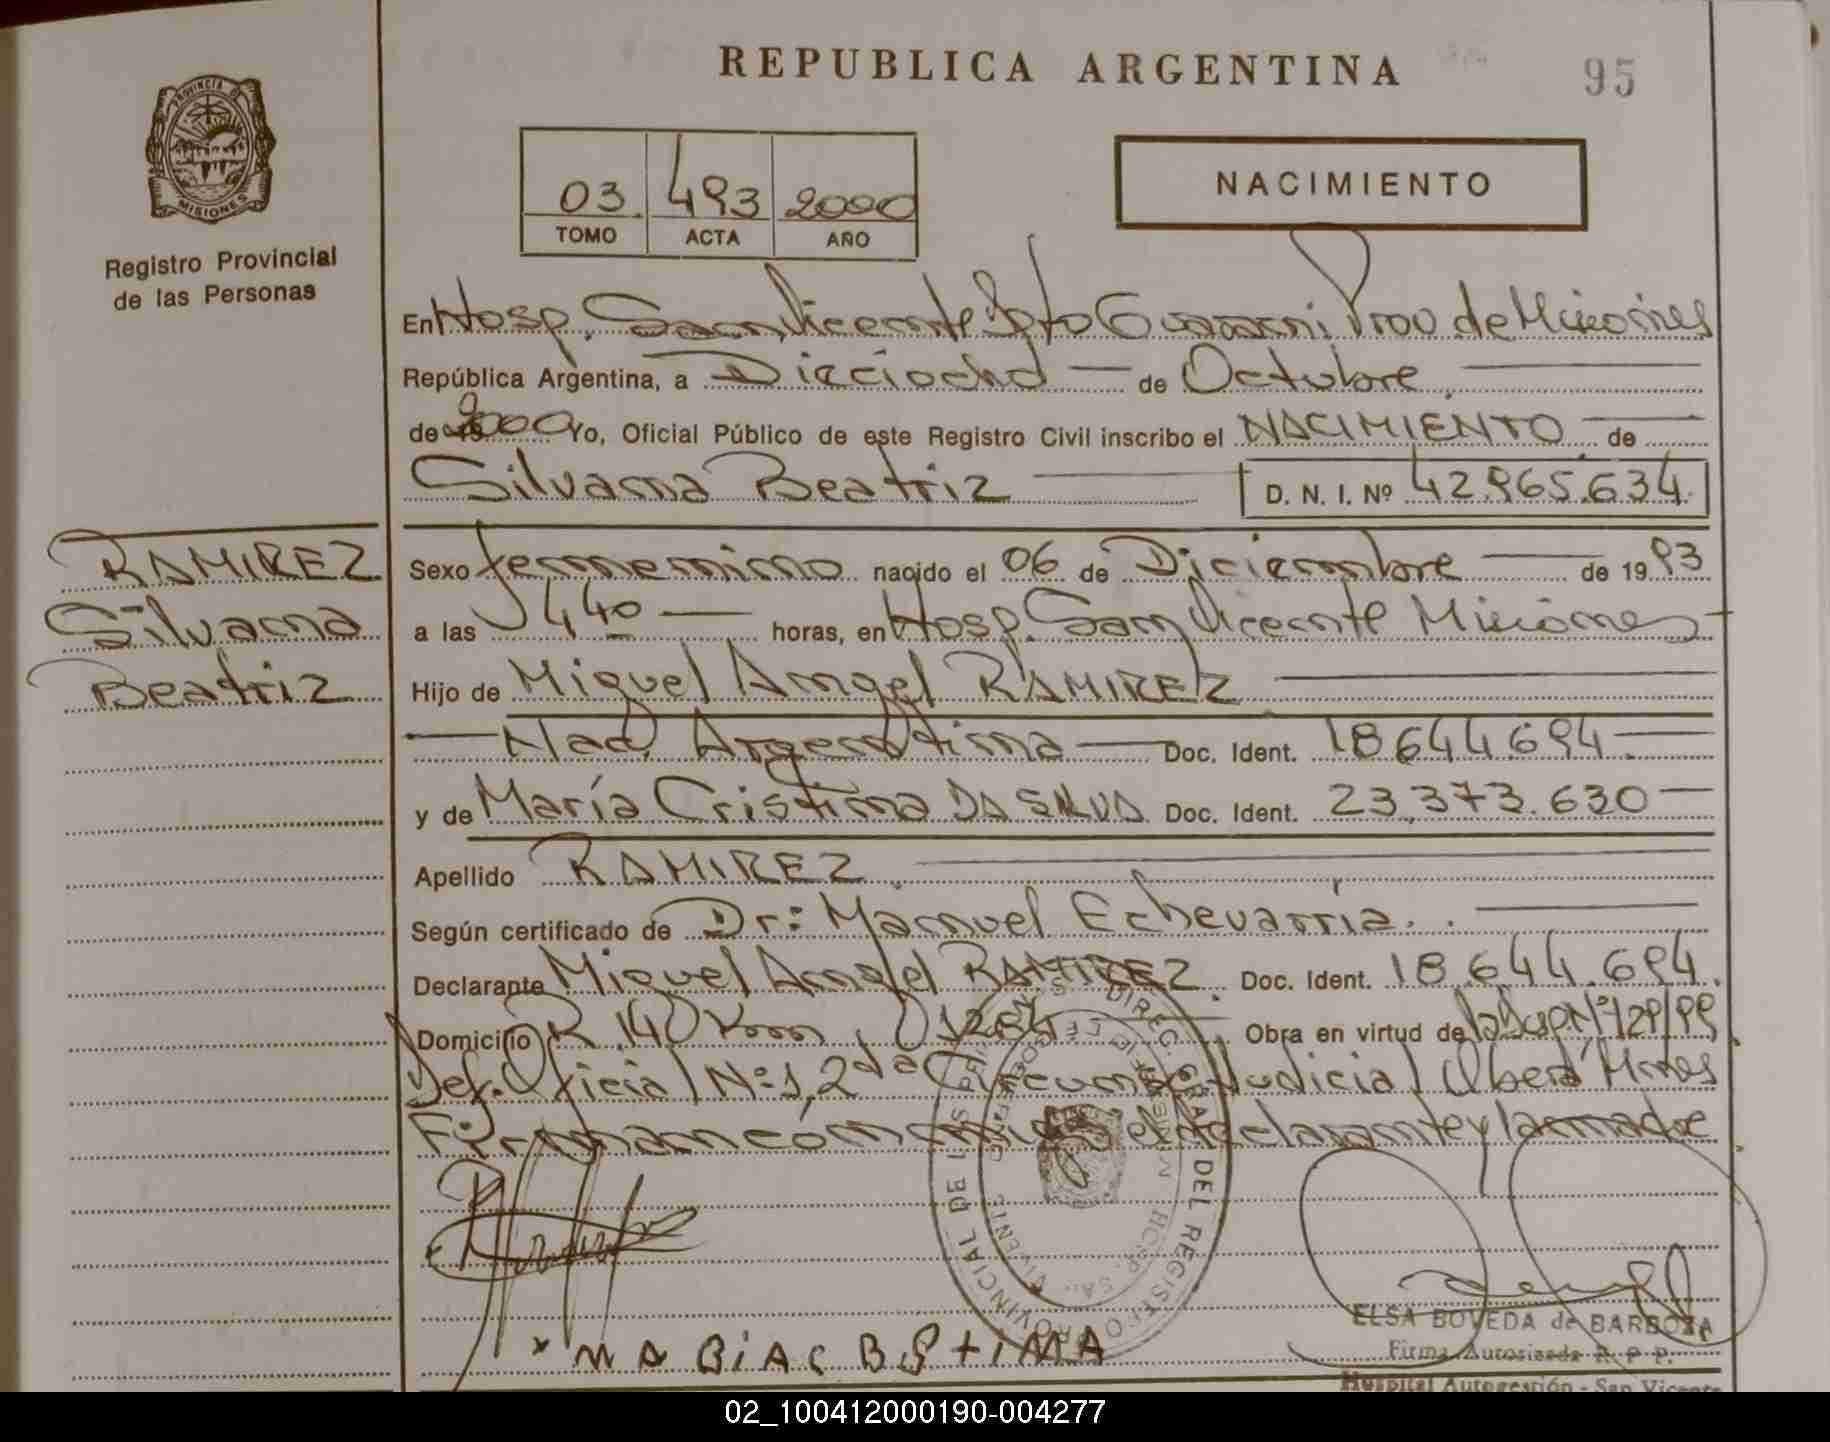 REPUBLICA ARGENTINA
95
PROVINCIA DE
MISIONES
Registro Provincial
de las Personas
03 493 2000
TOMO ACTA AÑO
NACIMIENTO
En Hosp. San Vicente Dpto Guarani. Prov de Misiones
República Argentina, a Dieciocho de Octubre
de 2000 Yo, Oficial Público de este Registro Civil inscribo el NACIMIENTO de
Silvana Beatriz D. N. I. Nº 42.965.634
RAMIREZ
Silvana
Beatriz
Sexo femenino nacido el 06 de Diciembre de 19 93
a las 4 40 horas, en Hosp. San Vicente Misiones
Hijo de Miguel Angel RAMIREZ
Nac. Argentina Doc. Ident. 18 644 694
y de María Cristina DA SILVA Doc. Ident. 23.373.630
Apellido RAMIREZ
Según certificado de Dr: Manuel Echevarría.
Declarante Miguel Angel RAMIREZ. Doc. Ident. 18.644.694.
Domicilio R 14 Km 1264 Obra en virtud de Nº 129/99
Def. Oficial Nº 1, 2da Circuns. Judicial Oberá Mnes
Firman con el declarante y la madre
DIREC. GRAL DEL REGISTRO PROVINCIAL DE LAS PERSONAS
ELSA BOVEDA de BARBOZA
Firma Autorizada R. P. P.
Hospital Autogestión - San Vicente
02_100412000190-004277